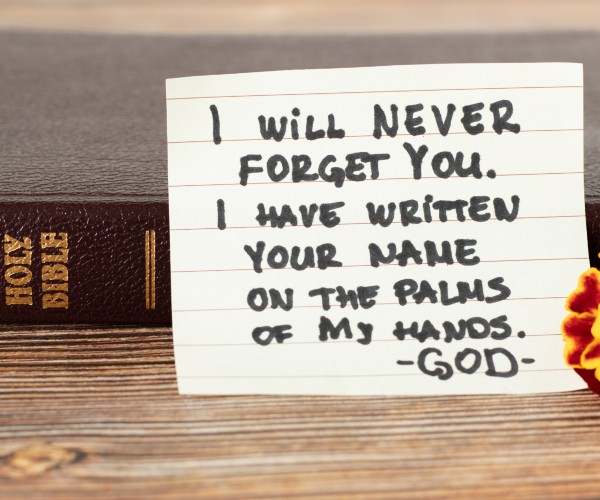 HOLY
BIBLE
I WiLL NEVER
FORGET YOU.
I HAVE WRITTEN
YOUR NAME
ON THE PALMS
OF MY HANDS.
-GOD-